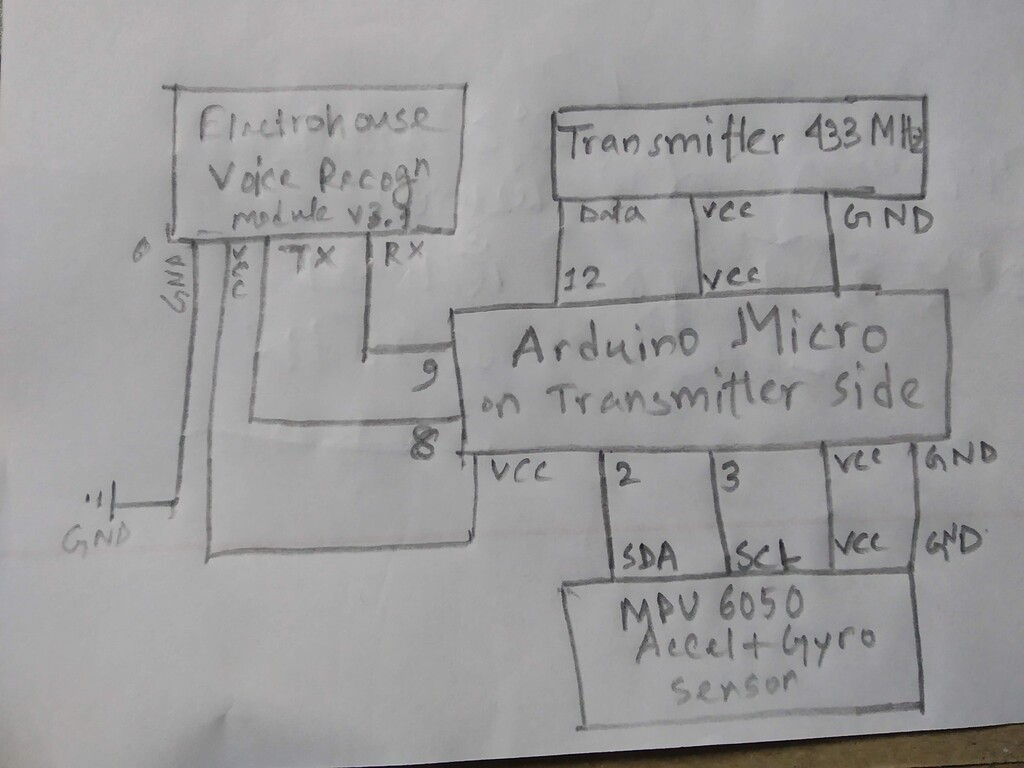 Electrohouse
Voice Recogn
module v3.1
GND
VCC
TX
RX
Transmitter 433 MHz
Data
VCC
GND
12
VCC
Arduino Micro
on Transmitter Side
9
8
VCC
2
3
VCC
GND
GND
SDA
SCL
VCC
GND
MPU 6050
Accel+Gyro
Sensor